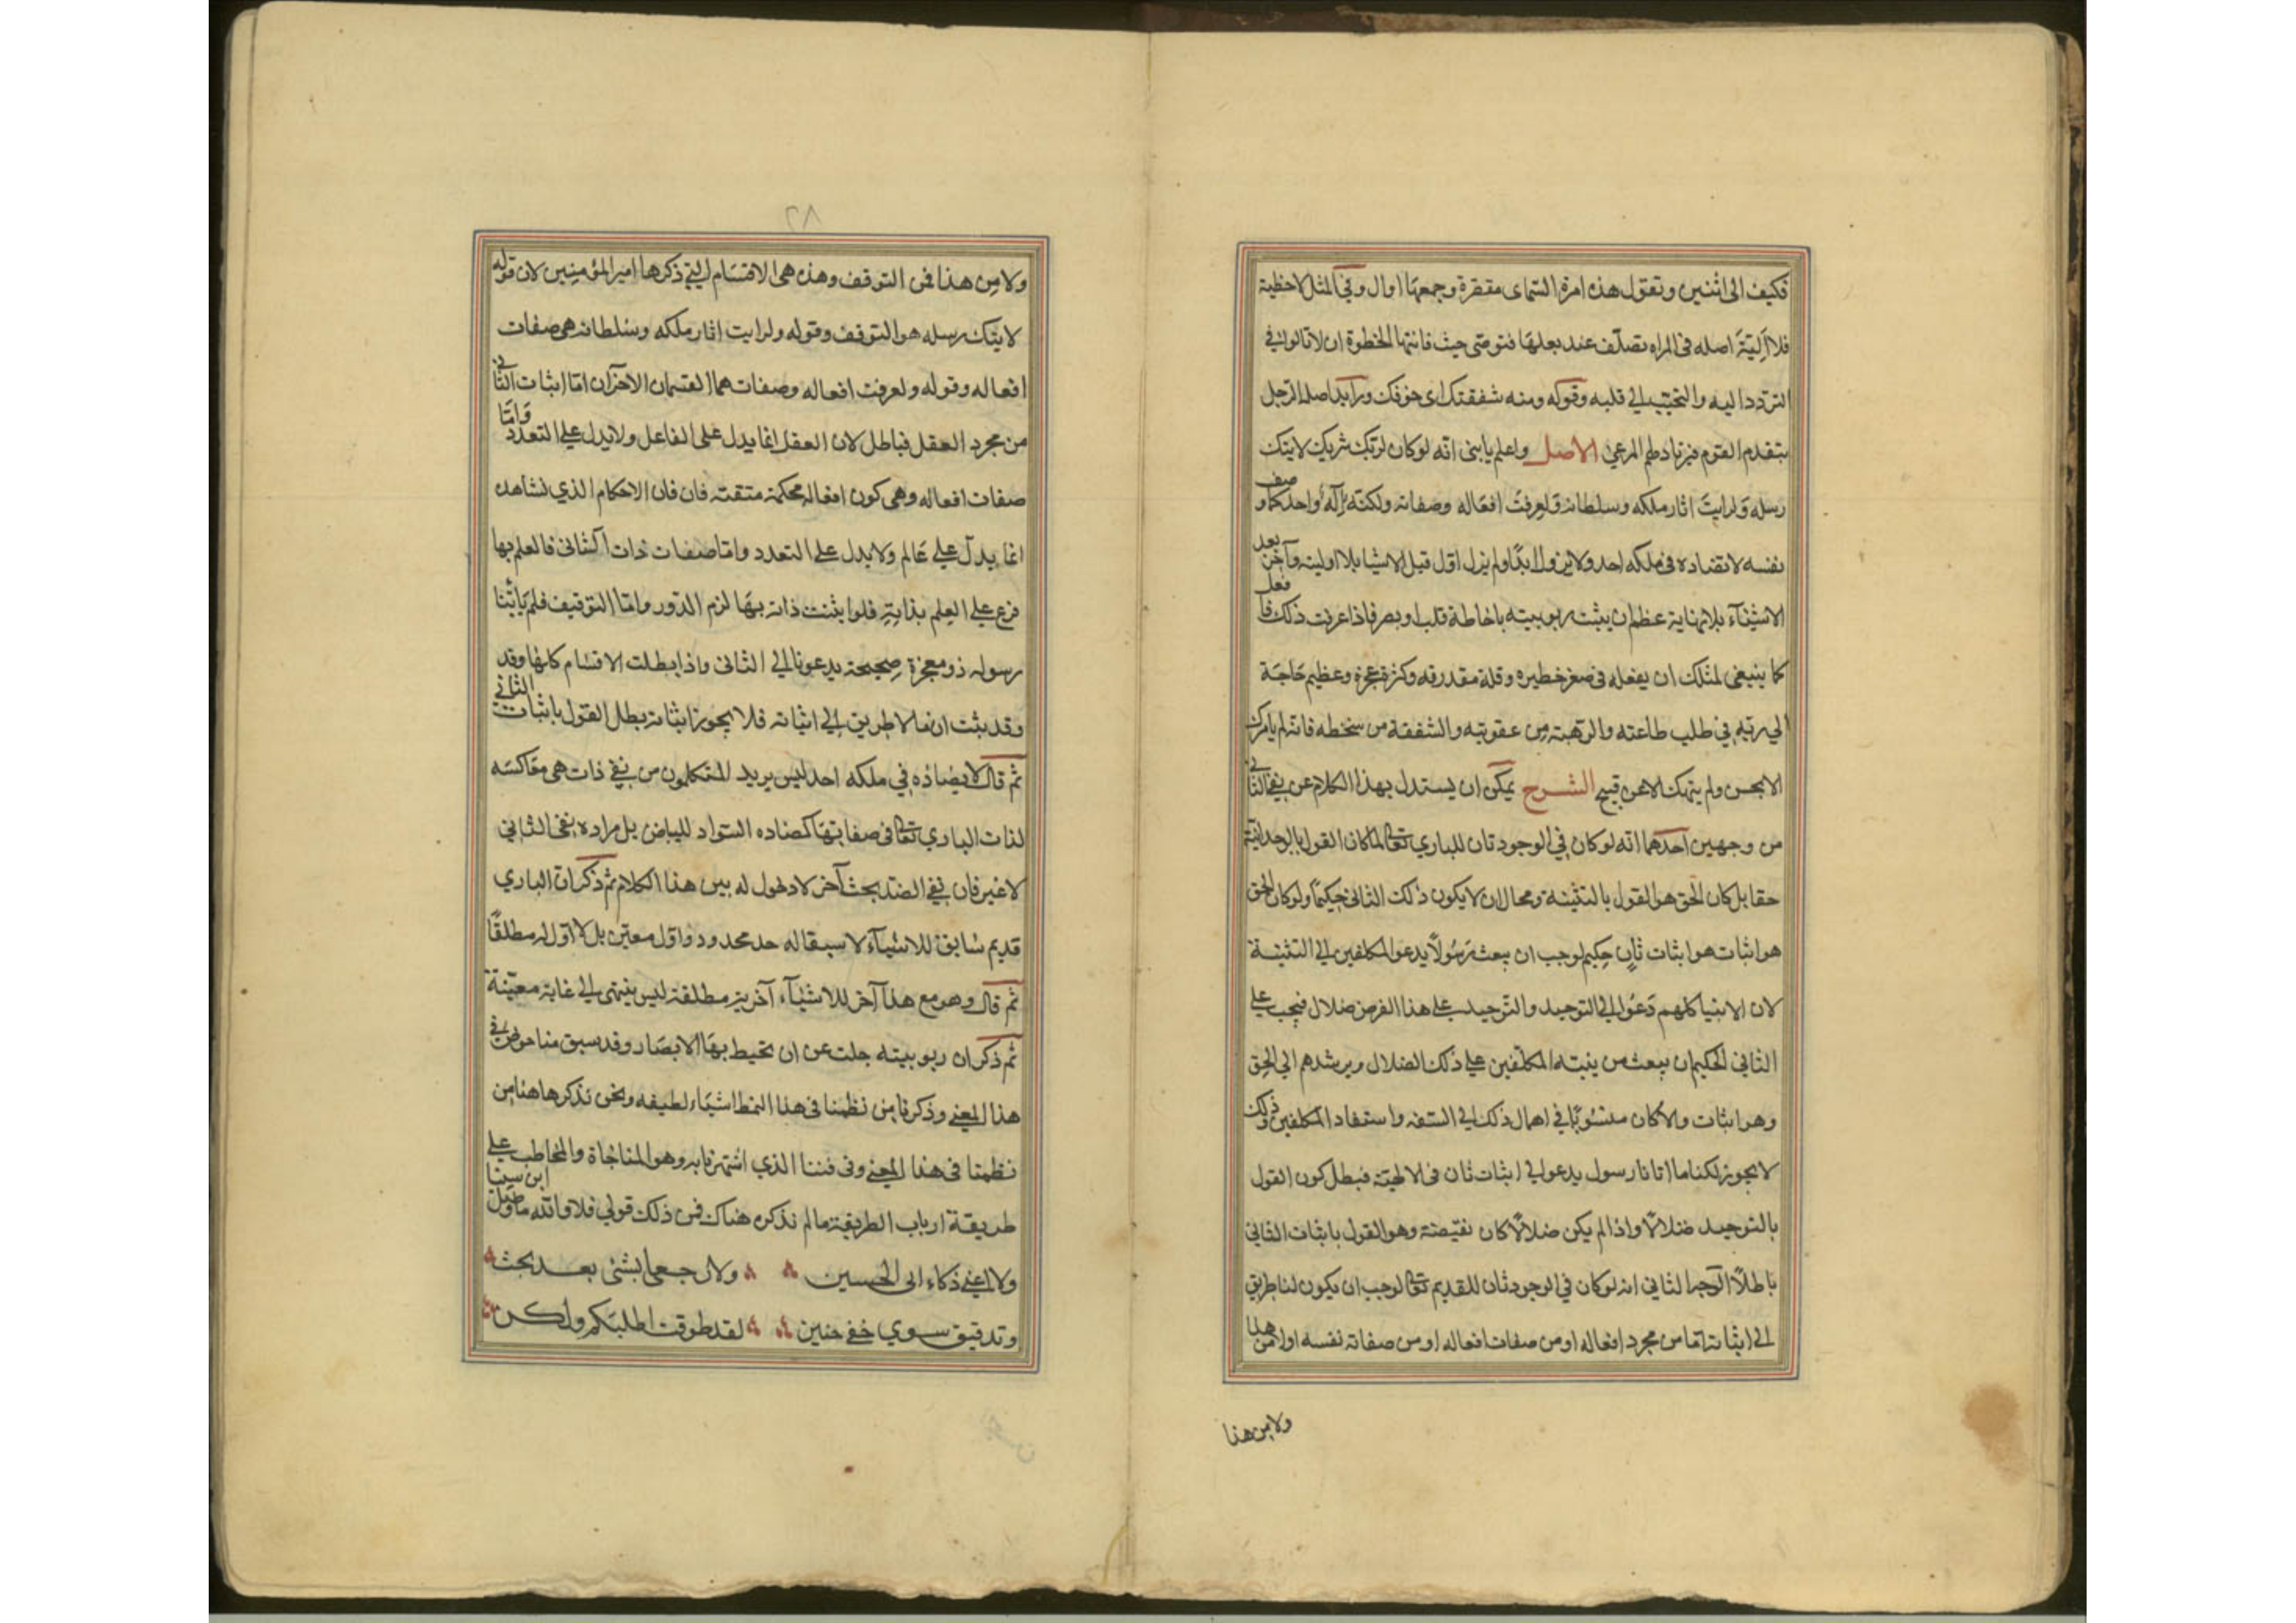 فكيف الى اثنين وتقول هذه امرة السماى مقفرة وجمعها اوال وفي المثل لاحظية
فلا اَلِيّةَ اصله في المراه تصلّف عند بعلها فتوصى حيث فاتتها الخطوة ان لا تالوا في
التردد اليه والتحبّب الى قلبه وقوله ومنه شفقتك اى خوفك ورايد اصله الرجل
يتقدم القوم فيرتاد طم المرعى الاصل واعلم يابنى انّه لو كان لربّك شريك لاتتك
رسله ولرايتَ اثار ملكه وسلطانه ولعرفتَ افعاله وصفاته ولكنّه اِلٰه واحد كما وصف
نفسه لا تضاده في ملكه احد ولا يزول ابدًا ولم يزل اول قبل الاشيا بلا اولية وآخر بعد
الاشيآء بلا نهاية عظم ان يثبت ربوبيته باحاطة قلب او بصر فاذا عرفت ذلك فافعل
كما ينبغى لمثلك ان يفعله في صغر خطيره وقلة مقدرته وكثرة عجزه وعظيم حَاجَة
الى ربّه في طلب طاعته والرّهبة مِن عقوبته والشفقة من سخطه فانّه لم يامرك
الا بحسن ولم ينهك الا عن قبيح الشرح يمكن ان يستدل بهذا الكلام عن نفى الثانى
من وجهين احدهما انّه لو كان في الوجود ثان للبارى تعالى لما كان القول بالوحدانية
حقا بل كان الحق هو القول بالتثنية ومحال ان لا يكون ذلك الثانى حكيمًا ولو كان الحق
هو اثبات هو اثبات ثانٍ حِكيم لوجب ان يبعث رَسُولًا يدعو المكلفين الى التثنية
لان الانبيا كلهم دَعَوا الى التوحيد والتوحيد على هذا الفرض ضلال فيجب على
الثانى الحكيم ان يبعث من ينبّه المكلّفين على ذلك الضلال ويرشدهم الى الحق
وهو اثبات والا كان منسُوبًا في اهمال ذلك الى السّفه واستفاد المكلفين وذلك
لا يجوز لكنا ما اتانا رسول يدعو الى اثبات ثان في الالهيّة فبطل كون القول
بالتوحيد ضلالًا واذا لم يكن ضلالًا كان نقيضه وهو القول باثبات الثانى
باطلًا الوجه الثانى انه لو كان في الوجود ثان للقديم تعالى لوجب ان يكون لنا طريق
الى اثباته امّا من مجرد افعاله او من صفات افعاله او من صفاته نفسه او لا من هذا
ولا من هذا
٨٢
ولا مِن هذا فمن التوقف وهذه هى الاقسَام التى ذكرها امير المؤمنين لان قوله
لاتتك رسله هو التوقف وقوله ولرايت اثار ملكه وسُلطانه هى صفات
افعاله وقوله ولعرفت افعاله وصفات هما القسمان الآخران امّا اثبات الثانى
من مجرد العقل فباطل لان العقل انما يدل على الفاعل ولا يدل على التعدد وَامّا
صفات افعاله وهى كون افعاله محكمة متقنة فان فان الاحكام الذي نشاهده
انما يدل على عَالم ولا يدل على التعدد وامّا صفات ذات الثانى فالعلم بها
فرع على العِلم بذاته فلو اثبتت ذاته بها لزم الدّور وامّا التوقيف فلم يَأتنا
رسوله ذو معجزة صحيحة يدعونا الى الثانى واذا بطلت الاقسَام كلها وقد
وقد ثبت ان ما لا طريق الى اثباته فلا يجوز اثباته بطل القول باثبات الثانى
ثم قال لا يضادّه في ملكه احد ليس يريد المتكلمون من نفى ذات هى معَاكسَه
لذات البارى تعالى في صفاتها كمضاده السّواد للبياض بل مراده نفى الثانى
لا غير فان نفى الضّد بحث آخر لا دخول له بين هذا الكلام ثم ذكر ان البارى
قديم سَابق للاشيآء لا سبقا له حد محدود واول معيّن بل لا اول له مطلقًا
ثم قال وهو مع هذا آخر للاشيآء آخرية مطلقة ليس ينتهى الى غاية معيّنة
ثم ذكر ان ربوبيته جلت عن ان تحيط بهَا الابصَار وقد سبق منا خوض فى
هذا المعنى وذكرنا مِن نظمنا في هذا النمط اشيَاء لطيفه ونحن نذكر هاهنا مِن
نظمنا في هذا المعنى وفى فننا الذي اشتهرنا به وهو المناجَاة والمخاطب على
طريقة ارباب الطريقة ما لم نذكره هناك فمن ذلك قولى فلا واللّه ما وصل ابن سينا
ولا اغنى ذكاء ابى الحسين ولا رجعا بشئ بعد بحث
وتدقيق سوى خفى حنين لقد طوقت اطلبكم ولكن